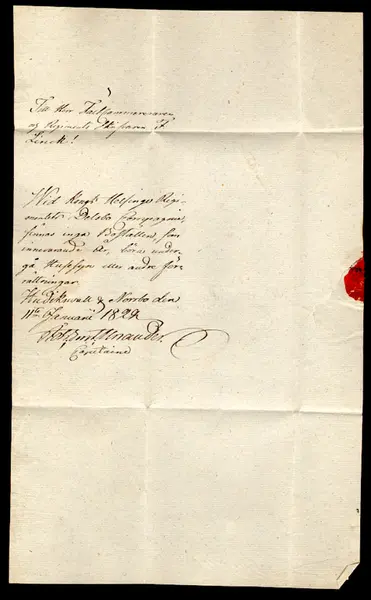 Till Herr Fältkammereraren
och Regiments Skrifvaren F
Linck!
Wid Kongl. Helsinge Regi-
mentets Delsbo Compagnie,
finnas inga Boställen, som
innevarande År, böra under-
gå Husesyn eller andre för-
rättningar.
Hudikswall & Norrbo den
11te Januarii 1822
Unander
Capitaine